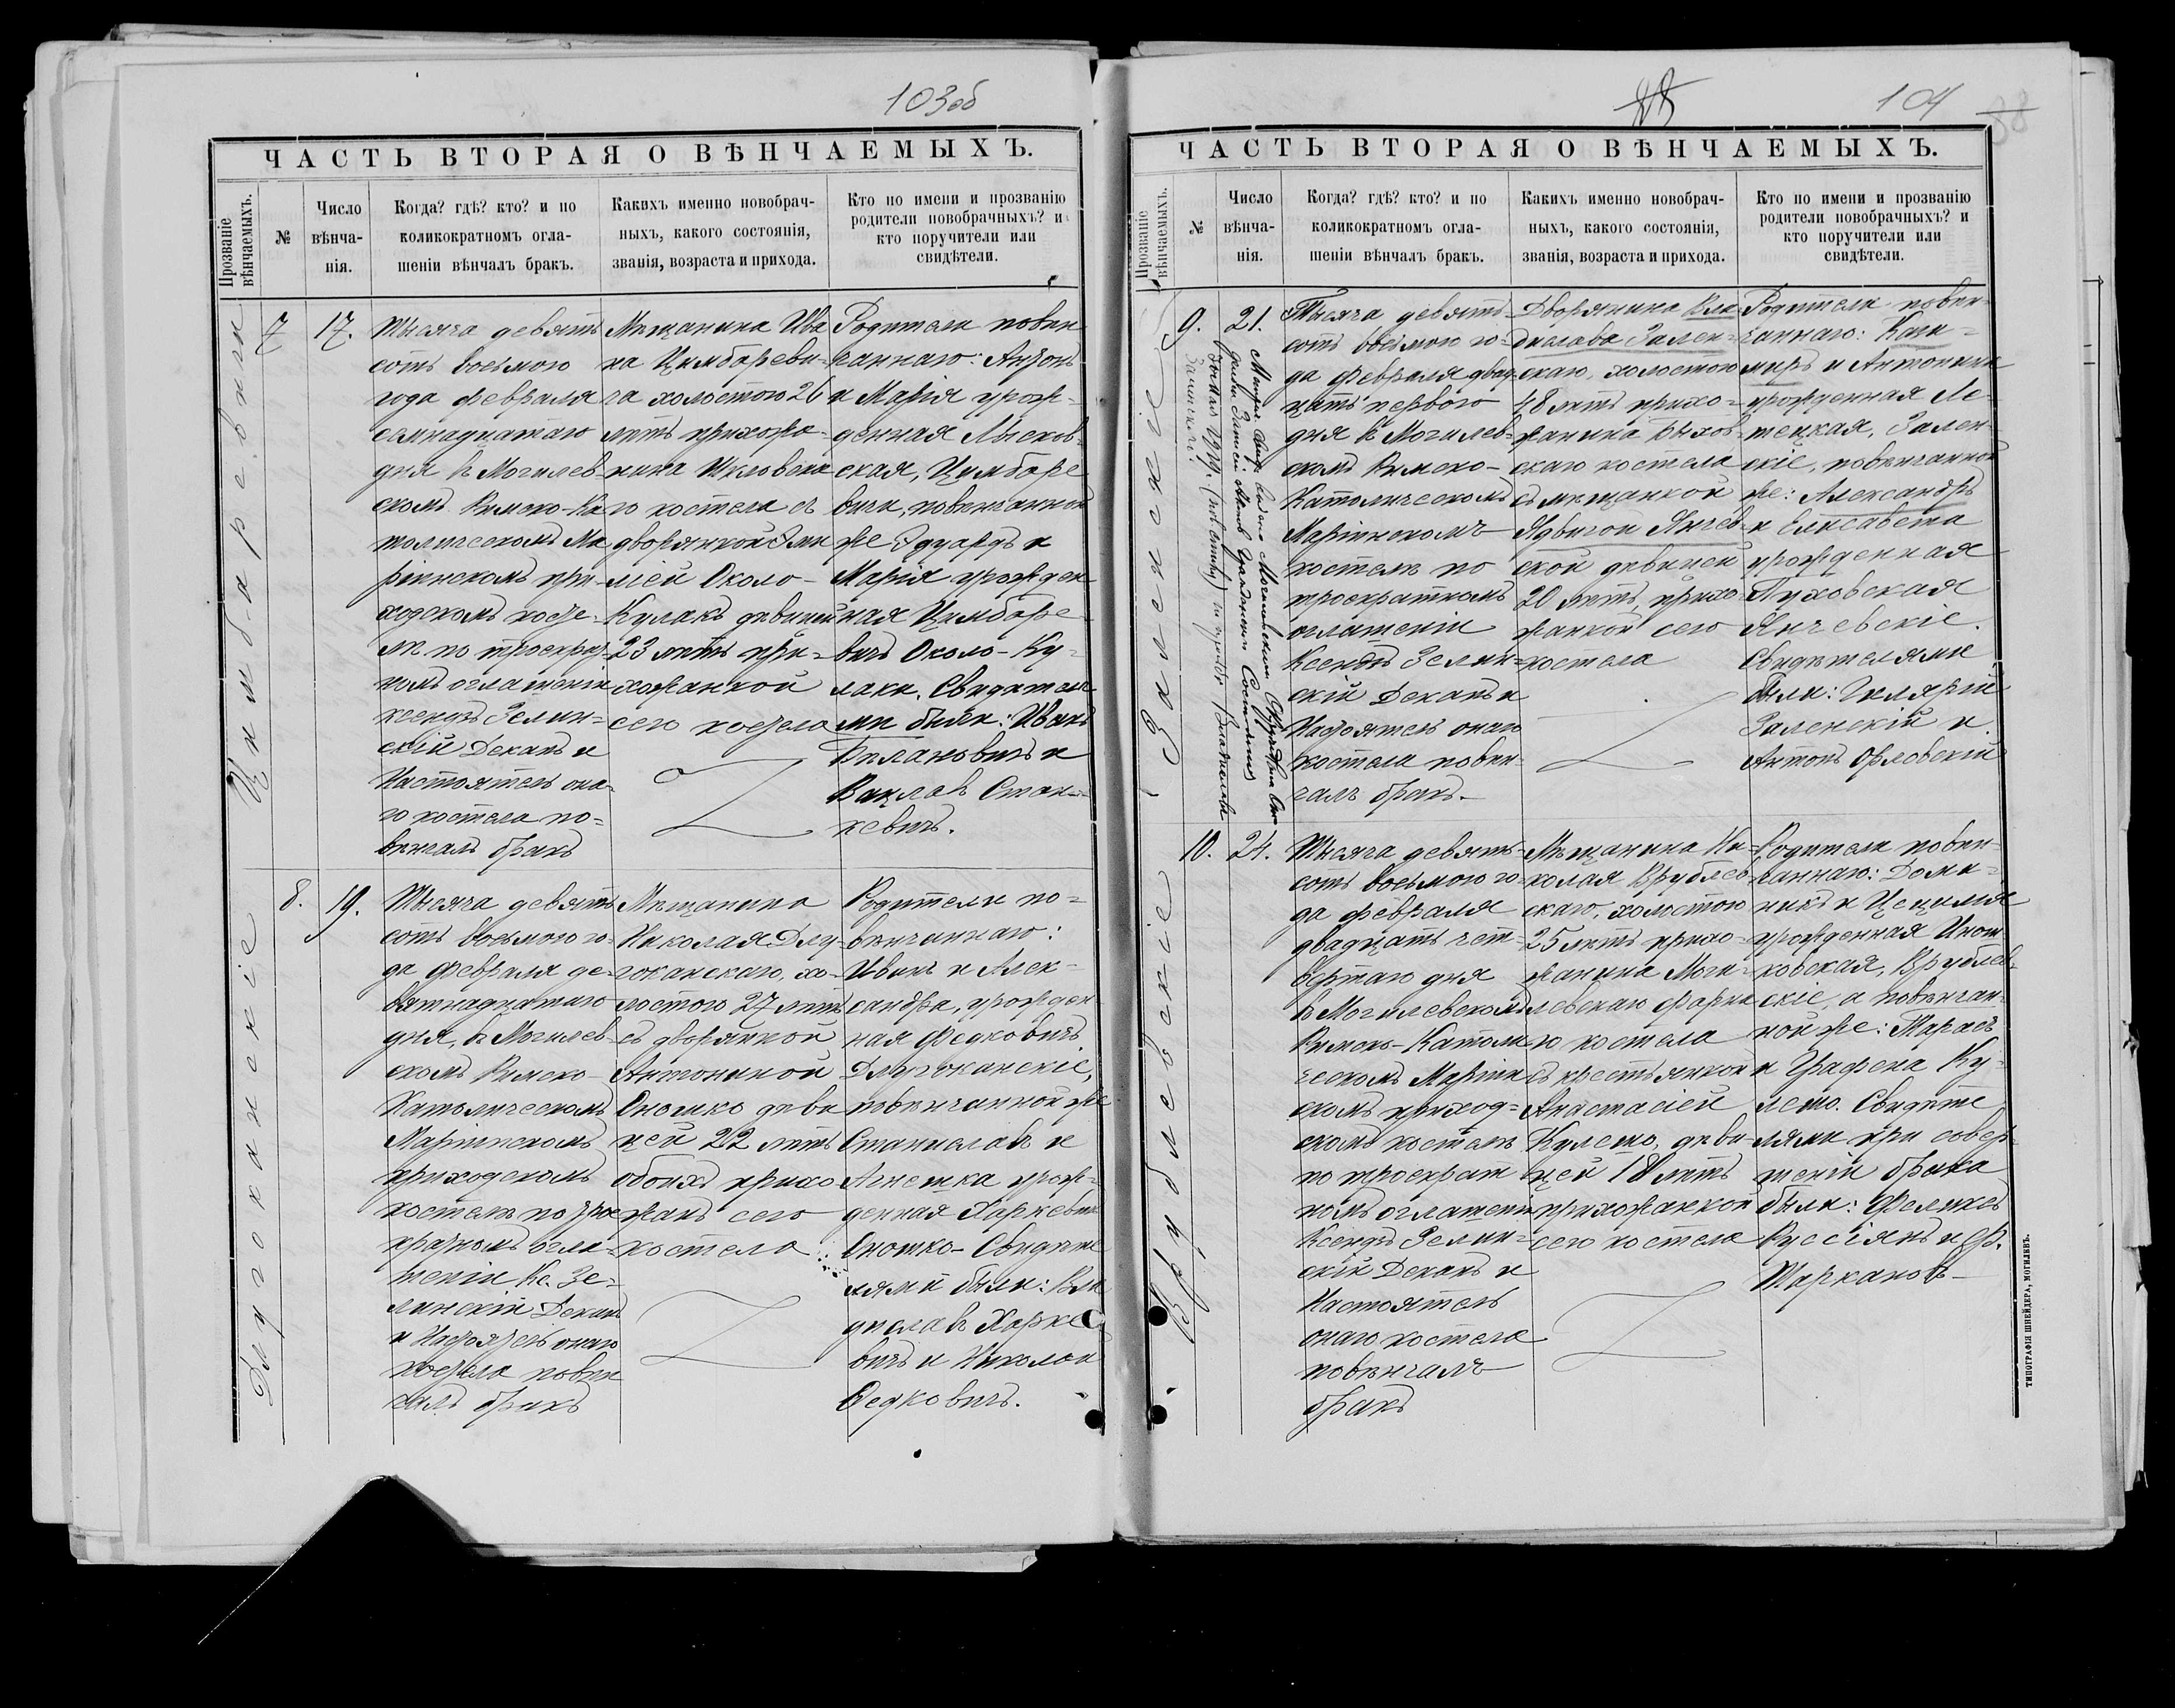 103 об
ЧАСТЬ ВТОРАЯ О ВѢНЧАЕМЫХЪ.
Прозваніе вѣнчаемыхъ.
№
Число вѣнча-нія.
Когда? гдѣ? кто? и по коликократномъ огла-шеніи вѣнчалъ бракъ.
Какихъ именно новобрач-ныхъ, какого состоянія, званія, возраста и прихода.
Кто по имени и прозванію родители новобрачныхъ? и кто поручители или свидѣтели.
Цимбаревичи
7
17.
Тысяча девять
сотъ восьмого
года февраля
семнадцатаго
дня въ Могилев-
скомъ Римско-Ка
толическомъ Ма
ріинскомъ при-
ходскомъ косте-
лѣ по троекрат
номъ оглашеніи
ксендзъ Зелин=
скій Деканъ и
Настоятель она-
го костела по=
вѣнчалъ бракъ
Мѣщанина Ива
на Цимбареви-
ча холостого 26
лѣтъ прихожа-
нина
го костела съ
дворянкой Эми
ліей Около-
Кулакъ дѣвицей
23 лѣтъ при-
хожанкой
сего костела
Родители повѣн
чаннаго: Антонъ
и Марія урож-
денная Лысков-
ская, Цимбаре
вичи, повѣнчанной
же Эдуардъ и
Марія урожден
ная Цимбаре-
вичъ Около-Ку-
лаки. Свидѣтеля
ми были: Иванъ
Билановичъ и
Вацлавъ Стан-
кевичъ.
Длугоканскіе
8.
19.
Тысяча девять
сотъ восьмого го-
да февраля де-
вятнадцатаго
дня, въ Могилев-
скомъ Римско-
Католическомъ
Маріинскомъ
приходскомъ
костелѣ по трое
кратномъ огла-
шеніи Кс. Зе-
линскій Деканъ
и Настоятель онаго
костела повѣн
чалъ бракъ
Мѣщанина
Николая Длу-
гоканскаго, хо-
лостого 27 лѣтъ
съ дворянкой
Антониной
Оношко дѣви
цей 22 лѣтъ
обоихъ прихо
жанъ сего
костела.
Родители по=
вѣнчаннаго:
Иванъ и Алек-
сандра, урожден
ная Федковичъ
Длугоканскіе,
повѣнчанной же
Станиславъ и
Агнешка урож-
денная Харкевичъ
Оношко- Свидѣте
лями были: Вла
диславъ Харке
вичъ и Николай
Федковичъ.
104
88
ЧАСТЬ ВТОРАЯ О ВѢНЧАЕМЫХЪ.
Прозваніе вѣнчаемыхъ.
№
Число вѣнча-нія.
Когда? гдѣ? кто? и по коликократномъ огла-шеніи вѣнчалъ бракъ.
Какихъ именно новобрач-ныхъ, какого состоянія, званія, возраста и прихода.
Кто по имени и прозванію родители новобрачныхъ? и кто поручители или свидѣтели.
Заленскіе
9.
21.
Тысяча девять
сотъ восьмого го-
да февраля двад-
цать перваго
дня въ Могилев-
скомъ Римско-
Католическомъ
Маріинскомъ
костелѣ по
троекратномъ
оглашеніи
Ксендзъ Зелин-
скій Деканъ и
Настоятель онаго
костела повѣн-
чалъ бракъ.-
Дворянина Вла
дислава Зален-
скаго, холостого
48 лѣтъ прихо-
жанина Быхов-
скаго костела
съ мѣщанкой
Ядвигой Янчев-
ской дѣвицей
20 лѣтъ, прихо-
жанкой сего
костела
Родители повѣн-
чаннаго: Кази-
миръ и Антонина
урожденная Ле-
тецкая, Зален-
скіе, повѣнчанной
же: Александръ
и Елисавета
урожденная
Пуховская
Янчевскіе.
Свидѣтелями
были: Гилярій
Заленскій и
Антонъ Орловскій
Врублевскіе
10.
24.
Тысяча девять-
сотъ восьмого го-
да февраля
двадцать чет-
вертаго дня
въ Могилевскомъ
Римско-Католи
ческомъ Маріин
скомъ приход=
скомъ костелѣ
по троекрат
номъ оглашеніи
Ксендзъ Зелин-
скій Деканъ и
Настоятель
онаго костела
повѣнчалъ
бракъ
Мѣщанина Ни-
колая Врублев-
скаго, холостого
25 лѣтъ прихо-
жанина Моги-
левскаго фарна
го костела
съ крестьянкой
Анастасіей
Кулешо, дѣви-
цей 18 лѣтъ
прихожанкой
сего костела
Родители повѣн-
чаннаго: Доми-
никъ и Цецилія
урожденная
ковская, Врублев-
скіе, а повѣнчан-
ной же: Тарасъ
и Графена Ку-
лешо. Свидѣте
лями при совер-
шеніи брака
были: Феликсъ
Руссіянъ и Ф.
Шаркановъ
ТИПОГРАФІЯ ШНЕЙДЕРА, МОГИЛЕВЪ.